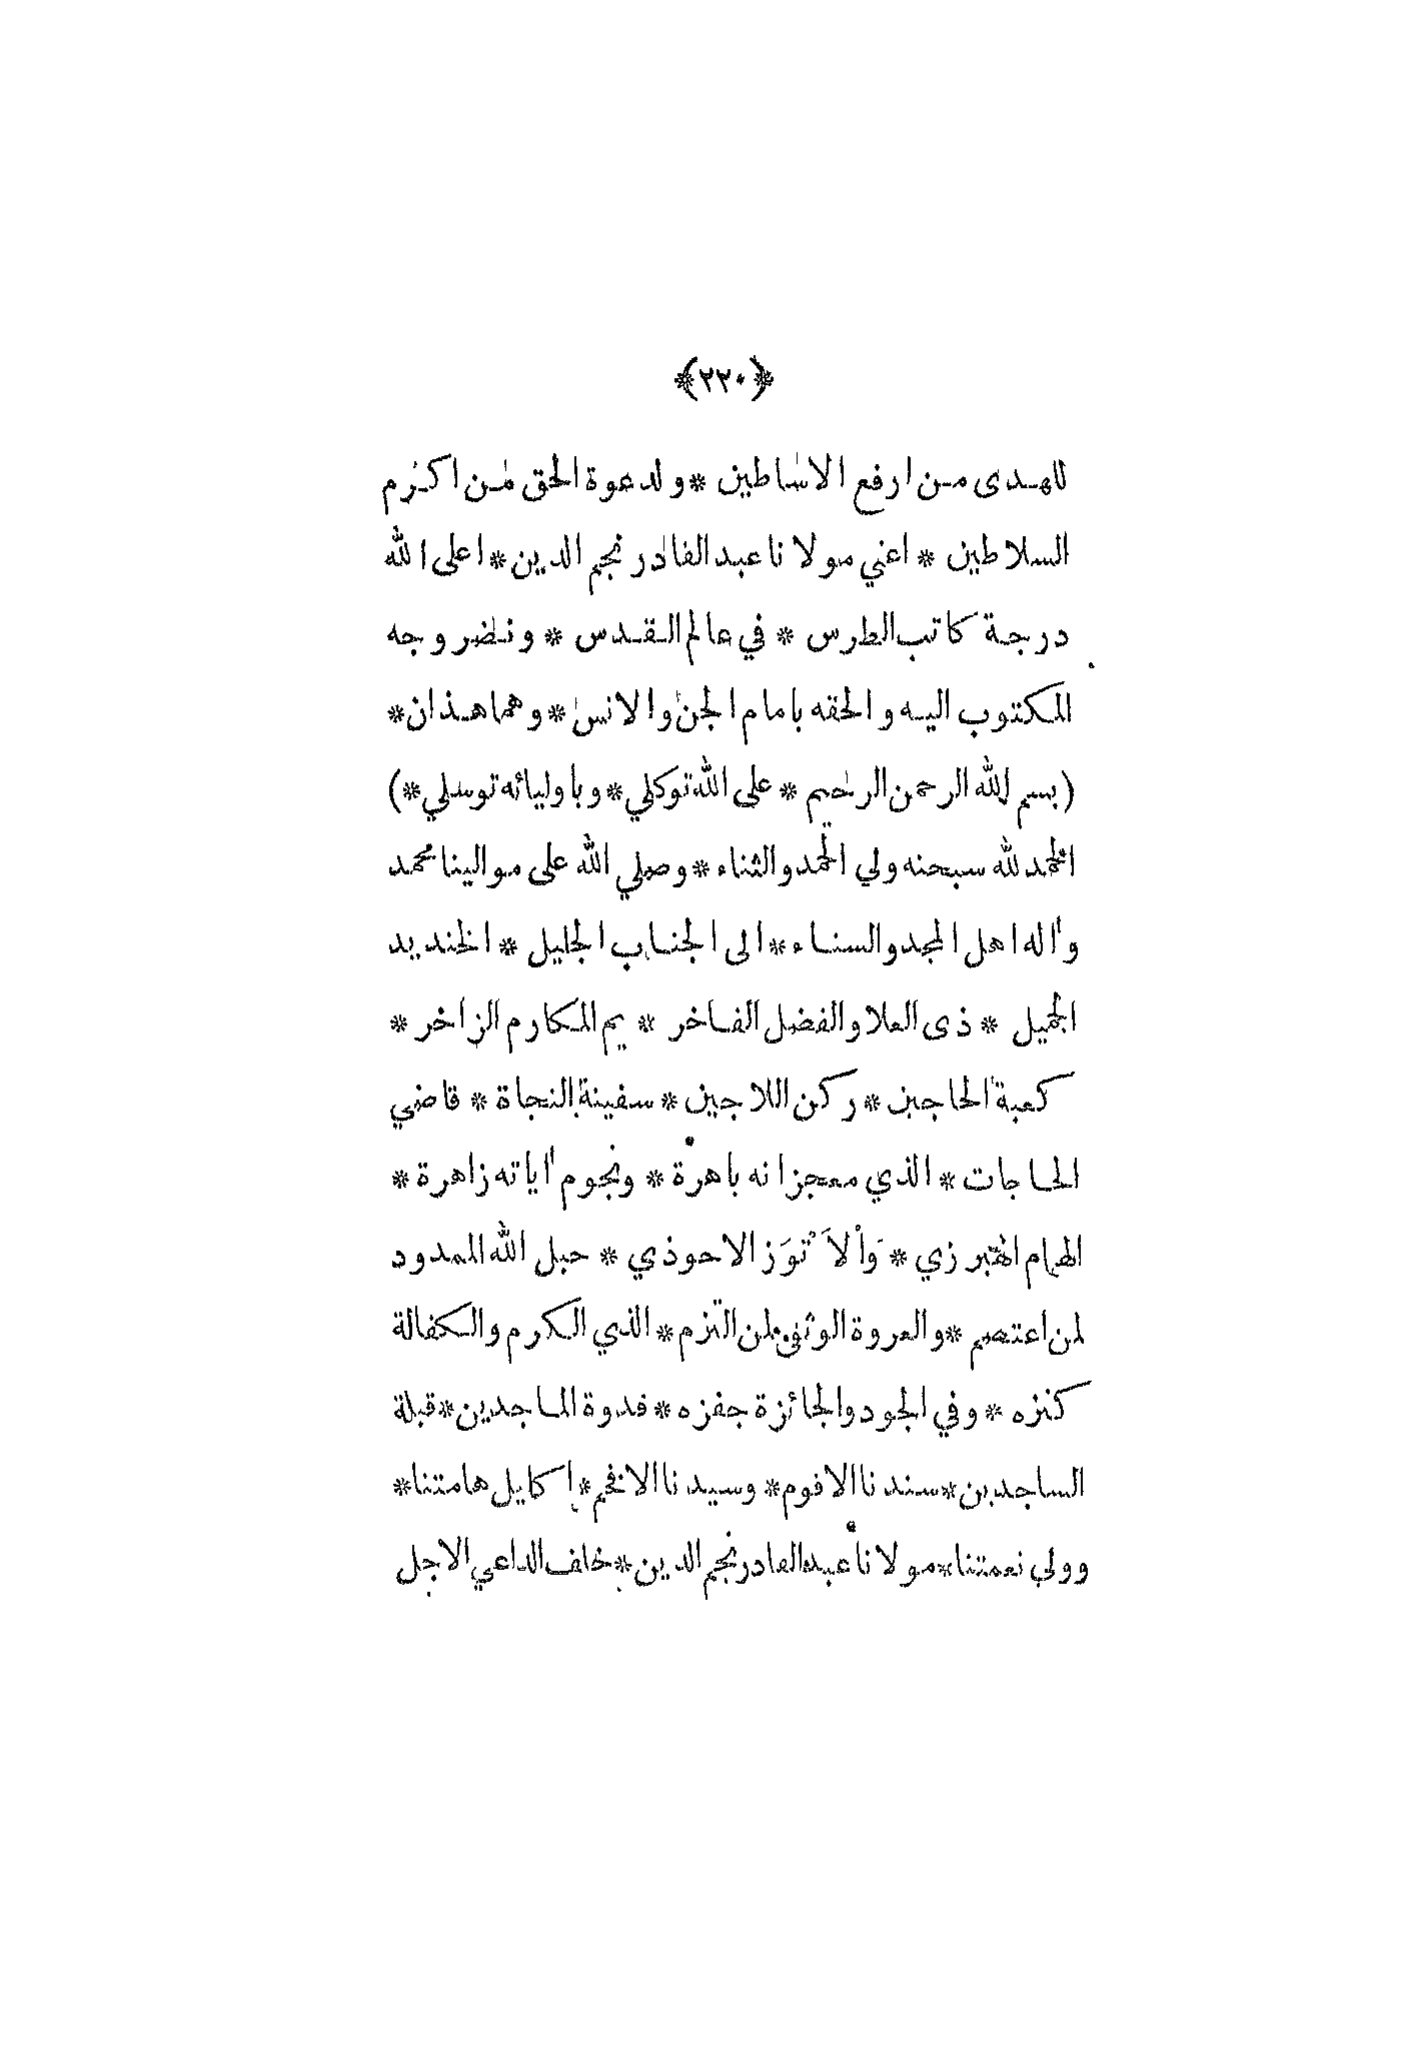 ﴿٢٢٠﴾
للهدى من ارفع الاساطين * ولدعوة الحق من اكرم
السلاطين * اعني مولانا عبد القادر نجم الدين * اعلى الله
درجة كاتب الطرس * في عالم القدس * ونضر وجه
المكتوب اليه والحقه بامام الجن والانس * وهما هذان *
(بسم الله الرحمن الرحيم * على الله توكلي * وباوليائه توسلي *)
الحمد لله سبحنه ولي الحمد والثناء * وصلي الله على موالينا محمد
وأله اهل المجد والسناء * الى الجناب الجليل * الخنديد
الجميل * ذى العلا والفضل الفاخر * يم المكارم الزاخر *
كعبة الحاجين * ركن اللاجين * سفينة النجاة * قاضي
الحاجات * الذي معجزاته باهرة * ونجوم أياته زاهرة *
الهمام الهبرزي * والاحوذي * حبل الله الممدود
لمن اعتصم * والعروة الوثقى لمن التزم * الذي الكرم والكفالة
كنزه * وفي الجود والجائزة جفزه * قدوة الماجدين * قبلة
الساجدين * سندنا الاقوم * وسيدنا الافخم * إكليل هامتنا *
وولي نعمتنا * مولانا عبد القادر نجم الدين * خلف الداعي الاجل